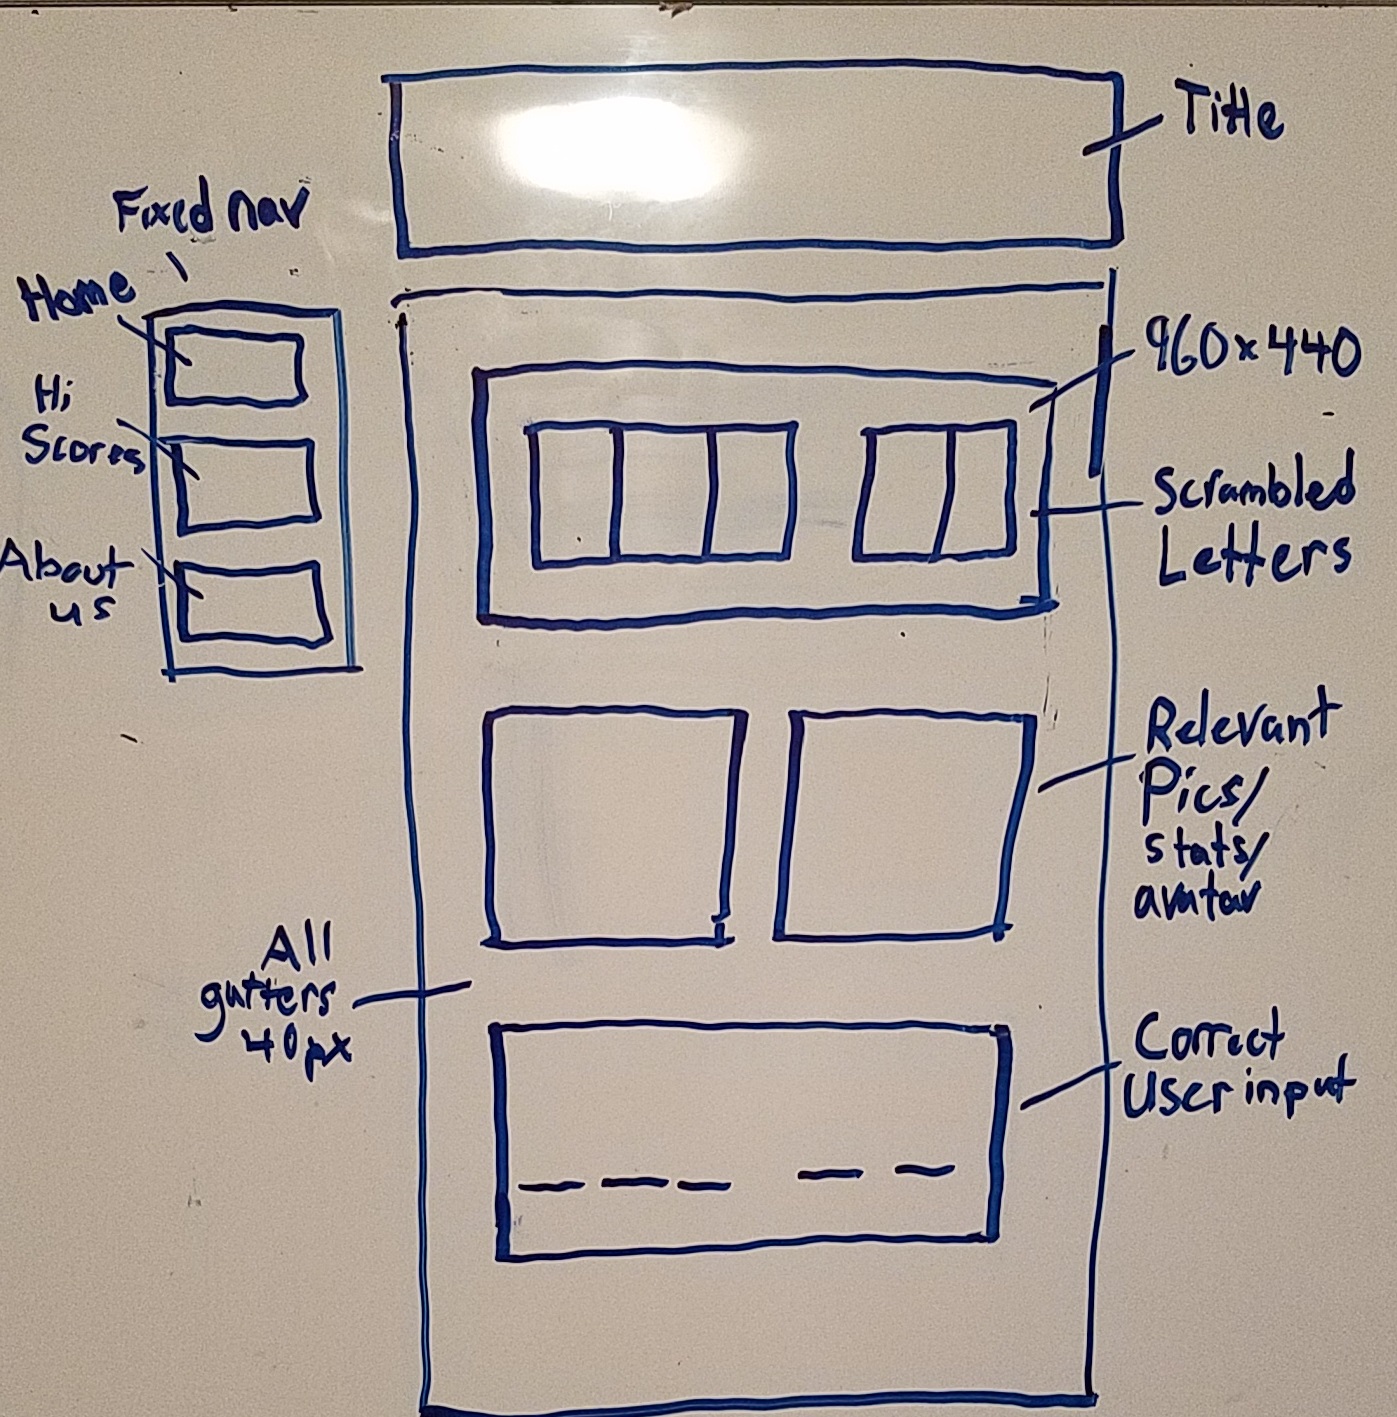 Title
Fixed nav
Home
Hi
Scores
About
us
960x440
Scrambled
Letters
Relevant
Pics/
stats/
avatar
All
gutters
40px
Correct
User input